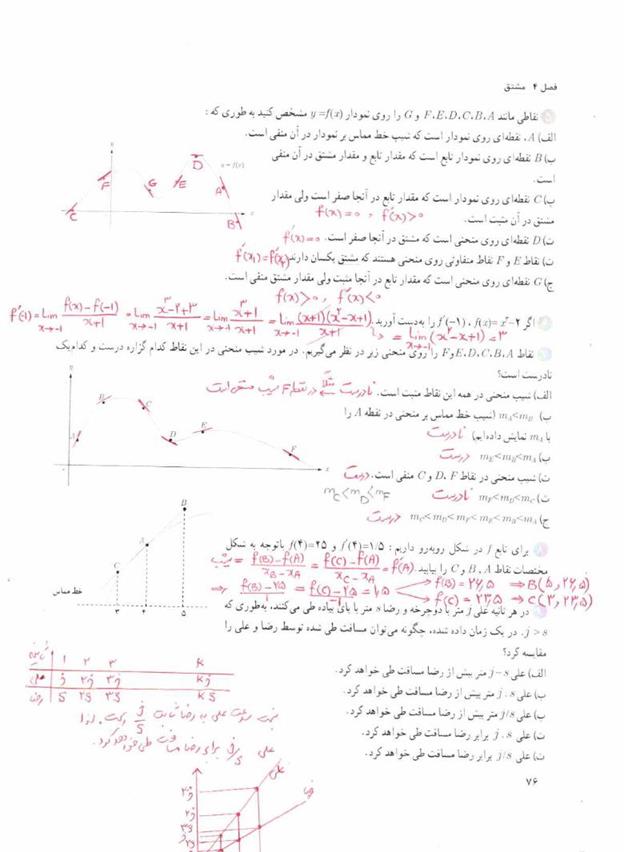 فصل ۴ مشتق
نقاطی مانند F،E،D،C،B،A و G را روی نمودار y=f(x) مشخص کنید به طوری که :
الف) A، نقطه‌ای روی نمودار است که شیب خط مماس بر نمودار در آن منفی است.
ب) B نقطه‌ای روی نمودار تابع است که مقدار تابع و مقدار مشتق در آن منفی
است.
پ) C نقطه‌ای روی نمودار است که مقدار تابع در آنجا صفر است ولی مقدار
مشتق در آن مثبت است. f(x)=0 , f'(x)>0
ت) D نقطه‌ای روی منحنی است که مشتق در آنجا صفر است. f'(x)=0
ث) نقاط E و F نقاط متفاوتی روی منحنی هستند که مشتق یکسان دارند.
ج) G نقطه‌ای روی منحنی است که مقدار تابع در آنجا مثبت ولی مقدار مشتق منفی است.
f(x)>0 , f'(x)<0
F G E D A C B
y=f(x)
اگر f(x)=x³-2، f'(-1) را به‌دست آورید.
f'(-1)=Lim f(x)-f(-1)/x+1 = Lim x³-2+3/x+1 = Lim x³+1/x+1 = Lim (x+1)(x²-x+1)/x+1
x→-1 x→-1 x→-1 x→-1
= Lim (x²-x+1) = 3
x→-1
نقاط F،E،D،C،B،A و را روی منحنی زیر در نظر می‌گیریم. در مورد شیب منحنی در این نقاط کدام گزاره درست و کدام‌یک
نادرست است؟
الف) شیب منحنی در همه این نقاط مثبت است. نادرست مثلاً در نقطه F شیب منفی است
ب) mA<mB (شیب خط مماس بر منحنی در نقطه A را
با mA نمایش داده‌ایم) نادرست
پ) mE<mB<mA درست
ت) شیب منحنی در نقاط D، F و C منفی است. درست
ث) mF<mD<mC نادرست mC<mD<mF
ج) mC<mD<mF<mE<mB<mA درست
A B C D E F x
برای تابع f در شکل روبه‌رو داریم : f'(۴)=۱/۵ و f(۴)=۲۵ باتوجه به شکل
مختصات نقاط B، A و C را بیابید.
شیب = f(B)-f(A)/xB-xA = f(C)-f(A)/xC-xA = f'(A)
⇒ f(B)-25/1 = f(C)-25/-1 = 1,5
f(B)=26,5 ⇒ B(5, 26,5)
f(C)=23,5 ⇒ C(3, 23,5)
B A C
خط مماس
۳ ۴ ۵
در هر ثانیه علی j متر با دوچرخه و رضا s متر با پای پیاده طی می‌کنند، به‌طوری که
j > s. در یک زمان داده شده، چگونه می‌توان مسافت طی شده توسط رضا و علی را
مقایسه کرد؟
الف) علی j-s متر بیش از رضا مسافت طی خواهد کرد.
ب) علی j.s متر بیش از رضا مسافت طی خواهد کرد.
پ) علی j/s متر بیش از رضا مسافت طی خواهد کرد.
ت) علی j.s برابر رضا مسافت طی خواهد کرد.
ث) علی j/s برابر رضا مسافت طی خواهد کرد.
ثانیه 1 2 3 K
علی j 2j 3j Kj
رضا s 2s 3s Ks
علی
رضا
۷۶